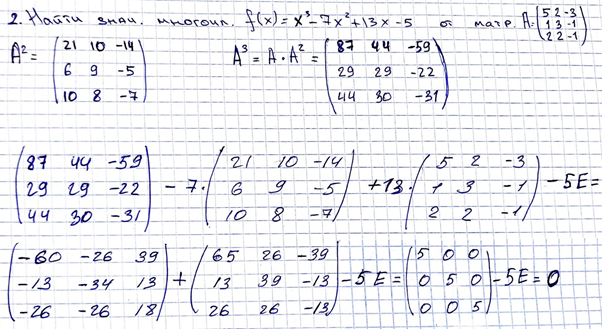 2. Найти знач. многочл. f(x) = x³ - 7x² + 13x - 5 от матр. A = (5 2 -3; 1 3 -1; 2 2 -1)
A² = (21 10 -14; 6 9 -5; 10 8 -7) A³ = A · A² = (87 44 -59; 29 29 -22; 44 30 -31)
(87 44 -59; 29 29 -22; 44 30 -31) - 7 · (21 10 -14; 6 9 -5; 10 8 -7) + 13 · (5 2 -3; 1 3 -1; 2 2 -1) - 5E =
(-60 -26 39; -13 -34 13; -26 -26 18) + (65 26 -39; 13 39 -13; 26 26 -13) - 5E = (5 0 0; 0 5 0; 0 0 5) - 5E = 0